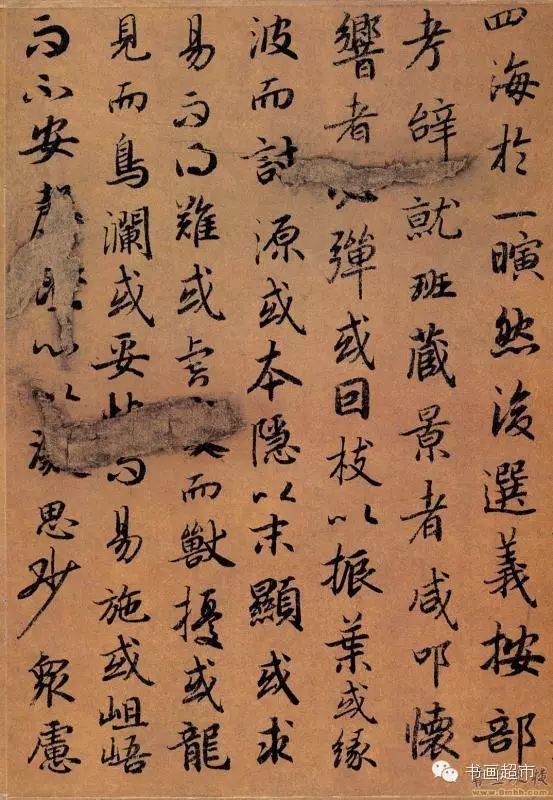 四海於一瞚然後選義按部
考辝就班藏景者咸叩懷
響者彈或因枝以振葉或緣
波而討源或本隱以末顯或求
易而得難或虎而獸擾或龍
見而鳥瀾或妥而易施或岨峿
而不安心以思眇眾慮
书画超市